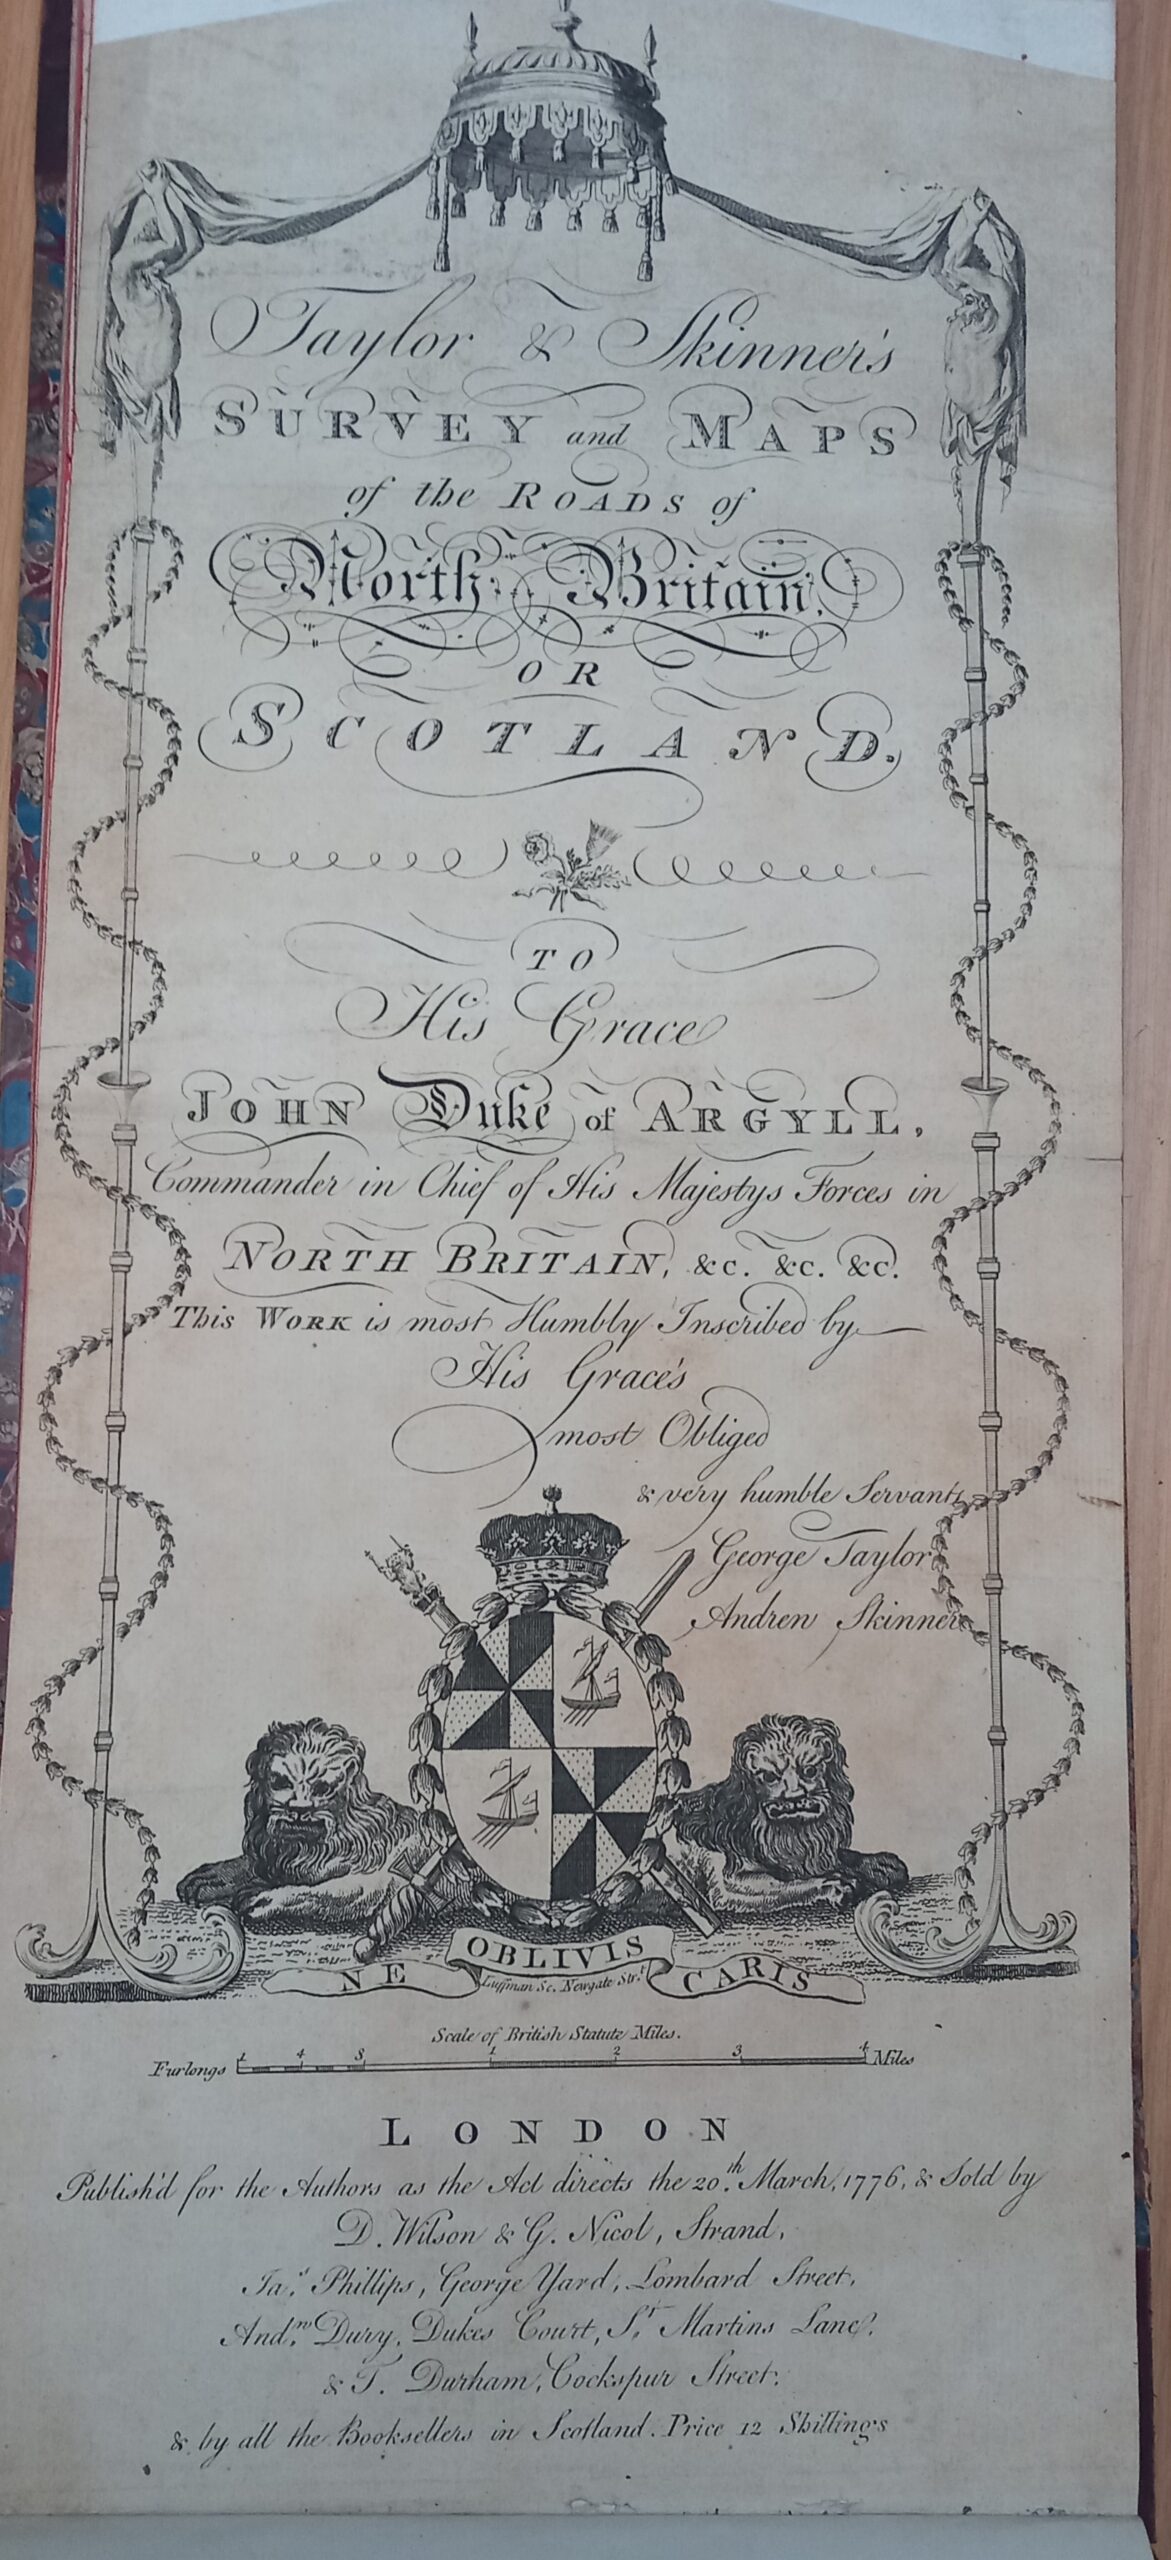 Taylor & Skinner's
SURVEY and MAPS
of the ROADS of
North Britain,
OR
SCOTLAND.
TO
His Grace
JOHN Duke of ARGYLL,
Commander in Chief of His Majestys Forces in
NORTH BRITAIN, &c. &c. &c.
This WORK is most Humbly Inscribed by
His Grace's
most Obliged
& very humble Servants
George Taylor
Andrew Skinner
NE OBLIVIS CARIS
Luffman Sc. Newgate Str.t
Scale of British Statute Miles.
4 8 1 2 3 4
Furlongs Miles
LONDON
Publish'd for the Authors as the Act directs the 20.th March, 1776, & Sold by
D. Wilson & G. Nicol, Strand,
Ja.s Phillips, George Yard, Lombard Street,
And.w Dury, Dukes Court, S.t Martins Lane,
& T. Durham, Cockspur Street;
& by all the Booksellers in Scotland. Price 12 Shillings